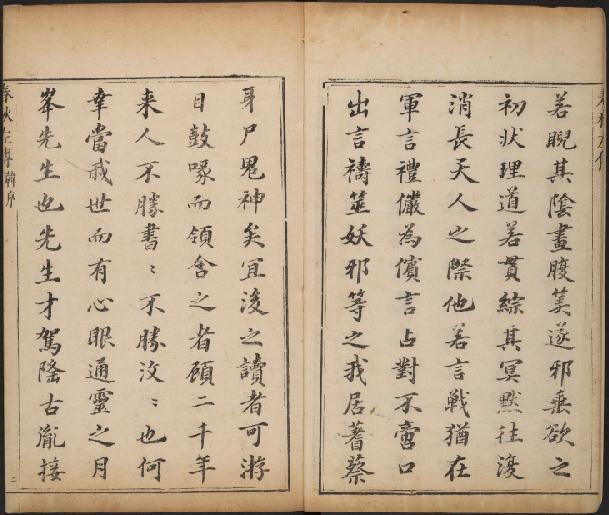 若睨其陰畫腹筭遂邪垂欲之
初狀理道若貫綜其冥黙往復
消長天人之際他若言戰猶在
軍言禮儼為儐言占對不啻口
出言禱筮妖邪等之我居蓍蔡
尸鬼神矣宜後之讀者可游
目鼓喙而領會之者顧二千年
来人不勝書〻不勝汶〻也何
幸當我世而有心眼通靈之月
峯先生也先生才駕隆古胤接
春秋左傳 序
二